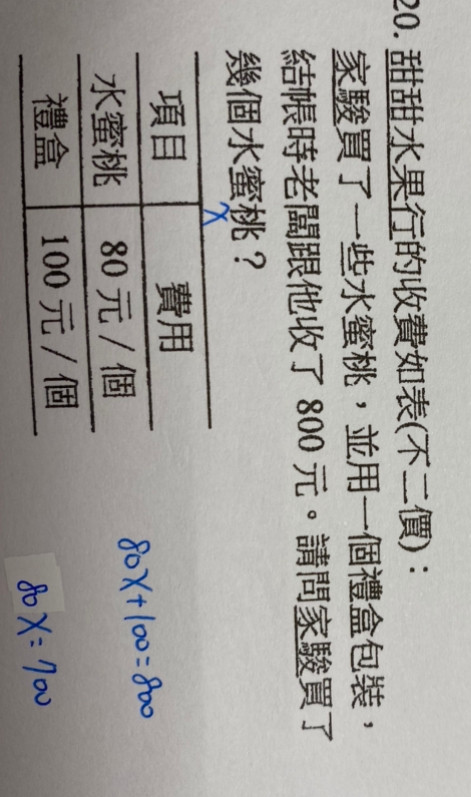 20. 甜甜水果行的收費如表(不二價)：
家駿買了一些水蜜桃，並用一個禮盒包裝，
結帳時老闆跟他收了 800 元。請問家駿買了
幾個水蜜桃？
x
項目 費用
水蜜桃 80 元 / 個
禮盒 100 元 / 個
80x+100=800
80x=700